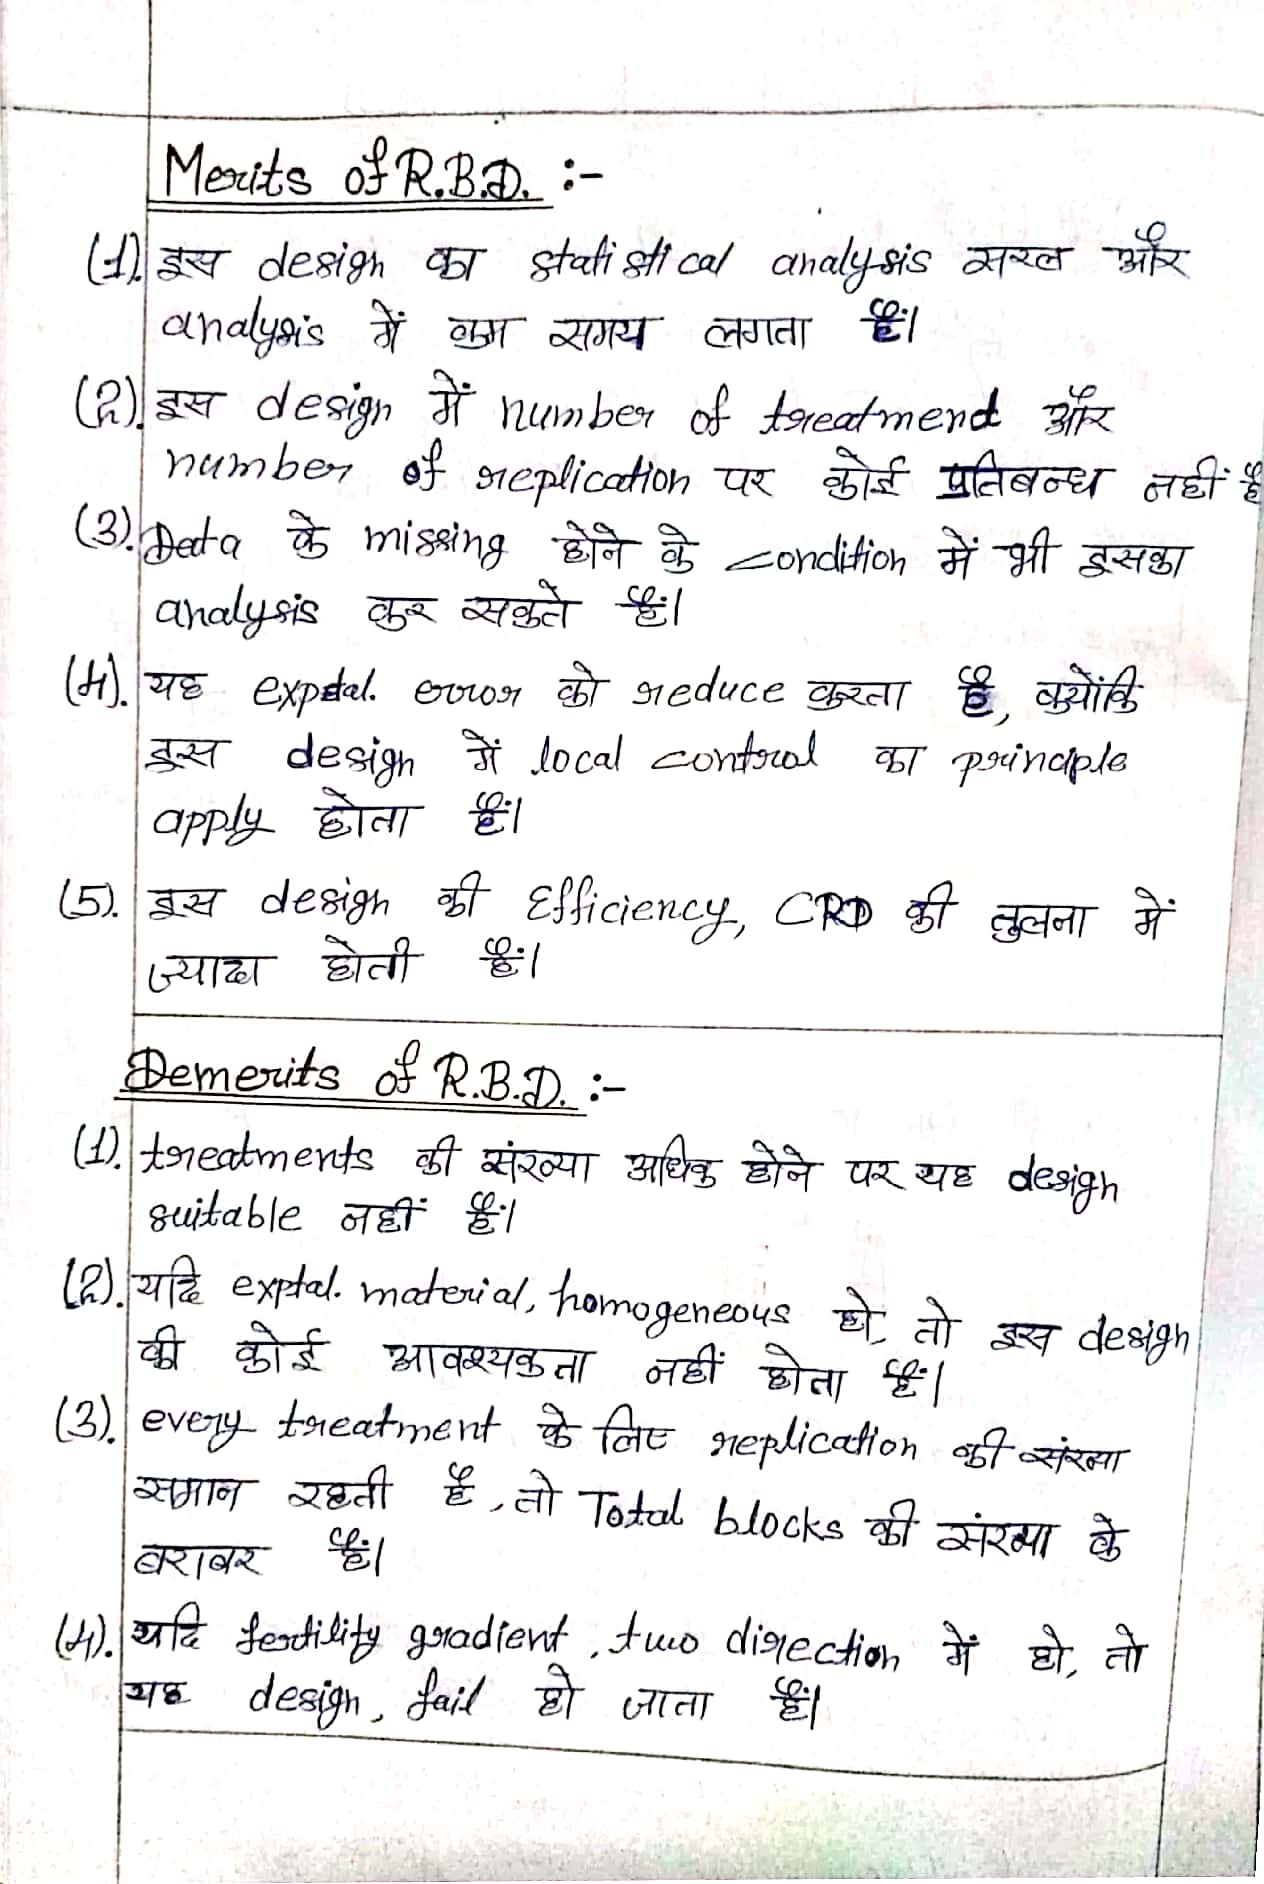 Merits of R.B.D. :-
(1). इस design का statistical analysis सरल और
analysis में कम समय लगता हैं।
(2). इस design में number of treatment और
number of replication पर कोई प्रतिबन्ध नहीं है
(3). Data के missing होने के condition में भी इसका
analysis कर सकते हैं।
(4). यह exptal. error को reduce करता है, क्योंकि
इस design में local control का principle
apply होता हैं।
(5). इस design की Efficiency, CRD की तुलना में
ज्यादा होती हैं।
Demerits of R.B.D. :-
(1). treatments की संख्या अधिक होने पर यह design
suitable नहीं हैं।
(2). यदि exptal. material, homogeneous हो, तो इस design
की कोई आवश्यकता नहीं होता हैं।
(3). every treatment के लिए replication की संख्या
समान रहती है, तो Total blocks की संख्या के
बराबर हैं।
(4). यदि fertility gradient, two direction में हो, तो
यह design, fail हो जाता हैं।